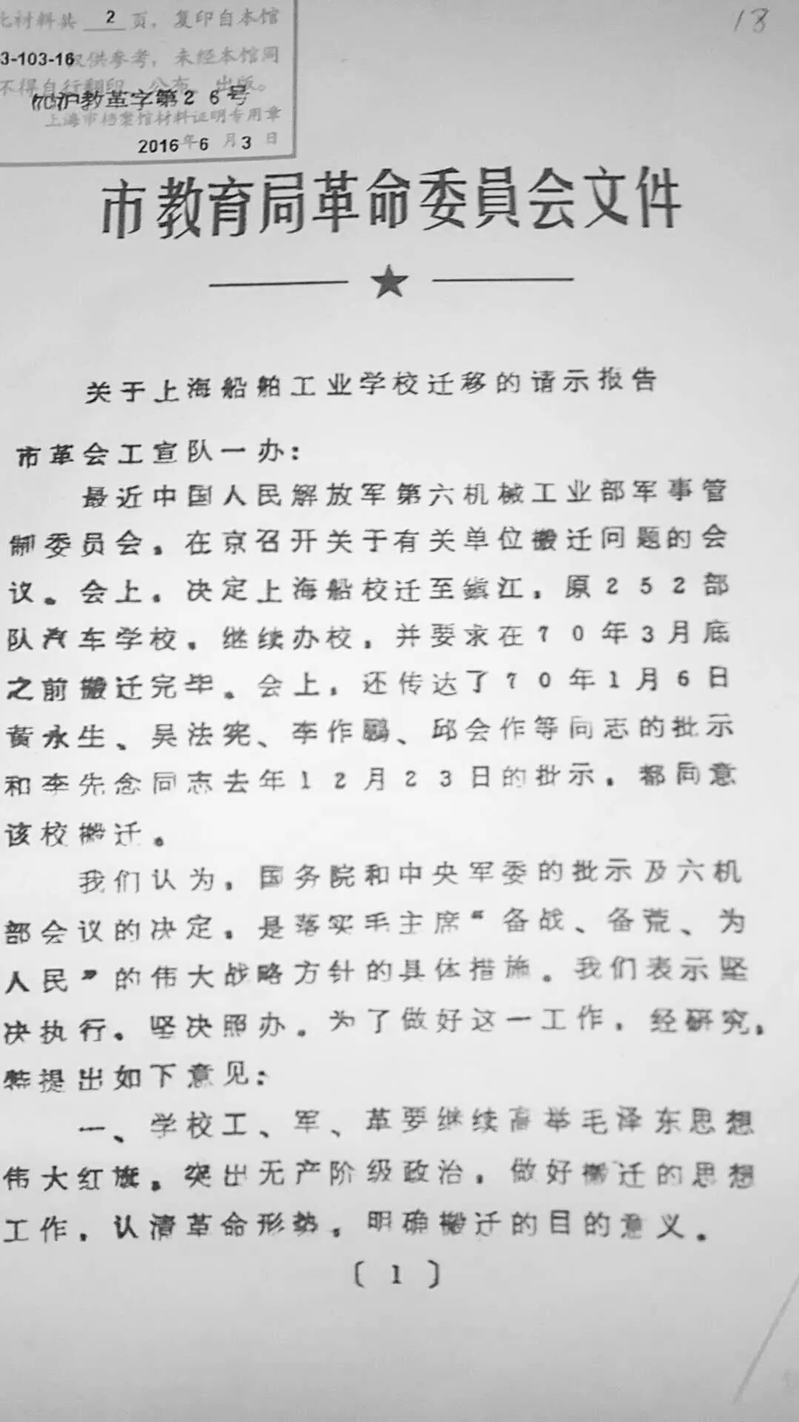 此材料共 2 页，复印自本馆
18
3-103-16 仅供参考，未经本馆同
不得自行翻印、公布、出版。
(70)沪教革字第26号
上海市档案馆材料证明专用章
2016年6月3日
市教育局革命委員会文件
关于上海船舶工业学校迁移的请示报告
市革会工宣队一办：
最近中国人民解放军第六机械工业部军事管
制委员会，在京召开关于有关单位搬迁问题的会
议。会上，决定上海船校迁至镇江，原252部
队汽车学校，继续办校，并要求在70年3月底
之前搬迁完毕。会上，还传达了70年1月6日
黄永生、吴法宪、李作鹏、邱会作等同志的批示
和李先念同志去年12月23日的批示，都同意
该校搬迁。
我们认为，国务院和中央军委的批示及六机
部会议的决定，是落实毛主席“备战、备荒、为
人民”的伟大战略方针的具体措施。我们表示坚
决执行。坚决照办。为了做好这一工作，经研究，
特提出如下意见：
一、学校工、军、革要继续高举毛泽东思想
伟大红旗，突出无产阶级政治，做好搬迁的思想
工作，认清革命形势，明确搬迁的目的意义。
〔1〕